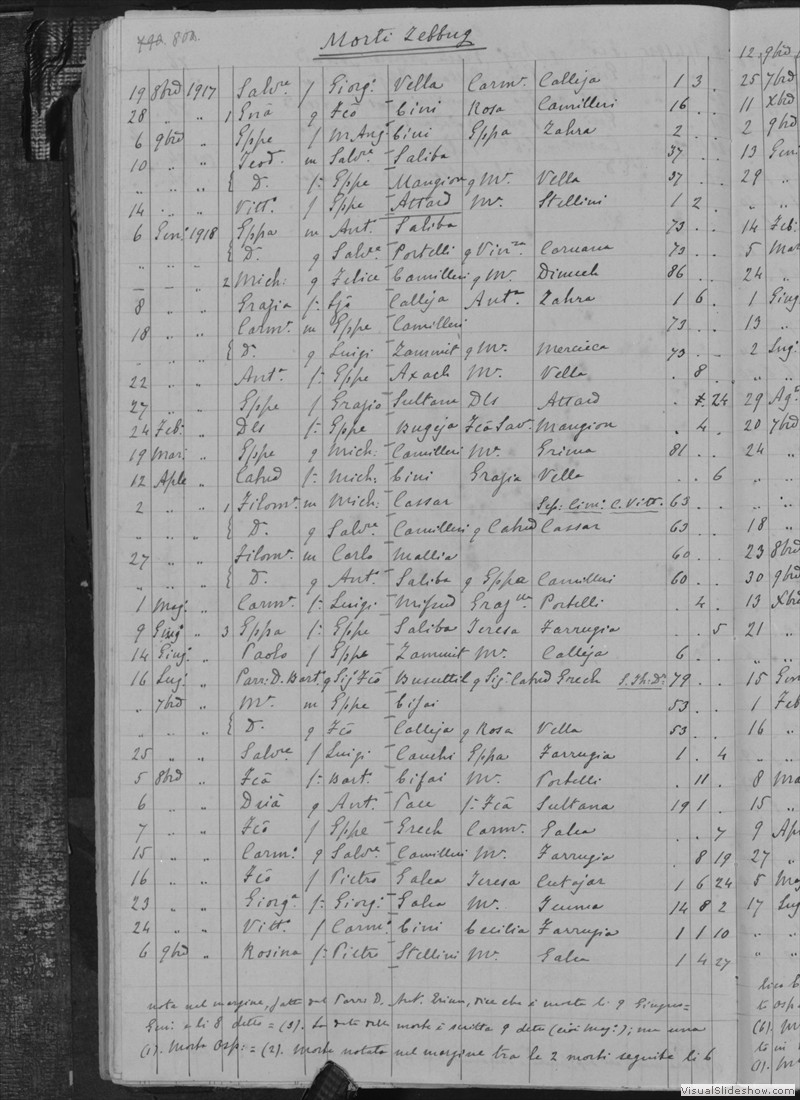 Morti Zebbug
19 8brē 1917 Salvre f Giorg: Vella Carmª Calleja 1 3 .
28 " " 1 Enrā q Fcō Cini Rosa Camilleri 16 . .
6 9brē " Gppe f M. Angº Cini Gppa Zahra 2 . .
10 " " Teodª m Salvre Saliba 37 . .
" " " { D. f: Gppe Mangion q Mª Vella 37 . .
14 " " Vittª f Gppe Attard Mª Stellini 1 2 .
6 Genº 1918 Gppa m Antº Saliba 73 . .
{ D. q Salvre Portelli q Vinza Caruana 73 . .
" " " 2 Mich: q Felice Camilleri q Mª Dimech 86 . .
8 " " Grazia f: Fcō Calleja Antª Zahra 1 6 .
18 " " Carmª m Gppe Camilleri 73 . .
" " " { D. q Luigi Zammit q Mª Mercieca 73 . .
22 " " Antª f: Gppe Axach Mª Vella . 8 .
27 " " Gppe f Grazio Sultana Dls Attard . 24
24 Feb: " Dls f: Gppe Bugeja Fcā Savª Mangion . 4 .
19 Mar: " Gppe q Mich: Camilleri Mª Grima 81 . .
12 Aple " Catnd f: Mich: Cini Grazia Vella . . 6
2 " " 1 Filomª m Mich: Cassar Sep: Cimº C. Vittª 63 . .
" " " { D. q Salvre Camilleri q Catnd Cassar 63 . .
27 " " Filomª m Carlo Mallia 60 . .
" " " { D. q Antº Saliba q Gppa Camilleri 60 . .
1 Magº " Carmª f: Luigi Mifsud Grazlla Portelli . 4 .
9 Giugº " 3 Gppa f: Gppe Saliba Teresa Farrugia . . 5
14 Giugº " Paolo f Gppe Zammit Mª Calleja 6 . .
16 Lugº " Parr: D. Bartº q Sigr Fcō Busuttil q Sigª Catnd Grech 79 . .
" 7brē " Mª m Gppe Cifai 53 . .
" " " { D. q Fcō Calleja q Rosa Vella 53 . .
25 " " Salvre f Luigi Cauchi Gppa Farrugia 1 . 4
5 8brē " Fcā f: Bart. Cifai Mª Portelli . 11 .
6 " " q Antº Pace f: Fcā Sultana 19 1 .
7 " " Fcō f Gppe Grech Carmª Galea . . 7
15 " " Carmº q Salvre Camilleri Mª Farrugia . 8 19
16 " " Fcō f Pietro Galea Teresa Cutajar 1 6 24
23 " " Giorgª f: Giorgº Galea Mª Tumma 14 8 2
24 " " Vittº f Carmº Cini Cecilia Farrugia 1 1 10
6 9brē " Rosina f: Pietro Stellini Mª Galea 1 4 27
nota nel margine, fatta dal Parro D. Ant. Grima, dice che è morta li 9 Giugno =
Genº e li 8 detto = (3). La data della morte è scritta 9 detto (cioè Magº); ma una
(1). Morto Osp: = (2). Morto notato nel margine tra le 2 morti seguite li 6
12 9brē
25 7brē
11 xbrē
2 9brē
13 Genº
29 "
" "
14 Feb:
5 Mar
24 "
1 Giug
13 "
2 Lug:
" "
29 Agº
20 7brē
24 "
" "
18 "
23 8brē
30 9brē
13 xbrē
21 "
" "
15 Gen
1 Feb
16 "
8 Ma
15 "
9 Ap
27 "
5 Mag
17 Lug
" "
" "
VisualSlideshow.com